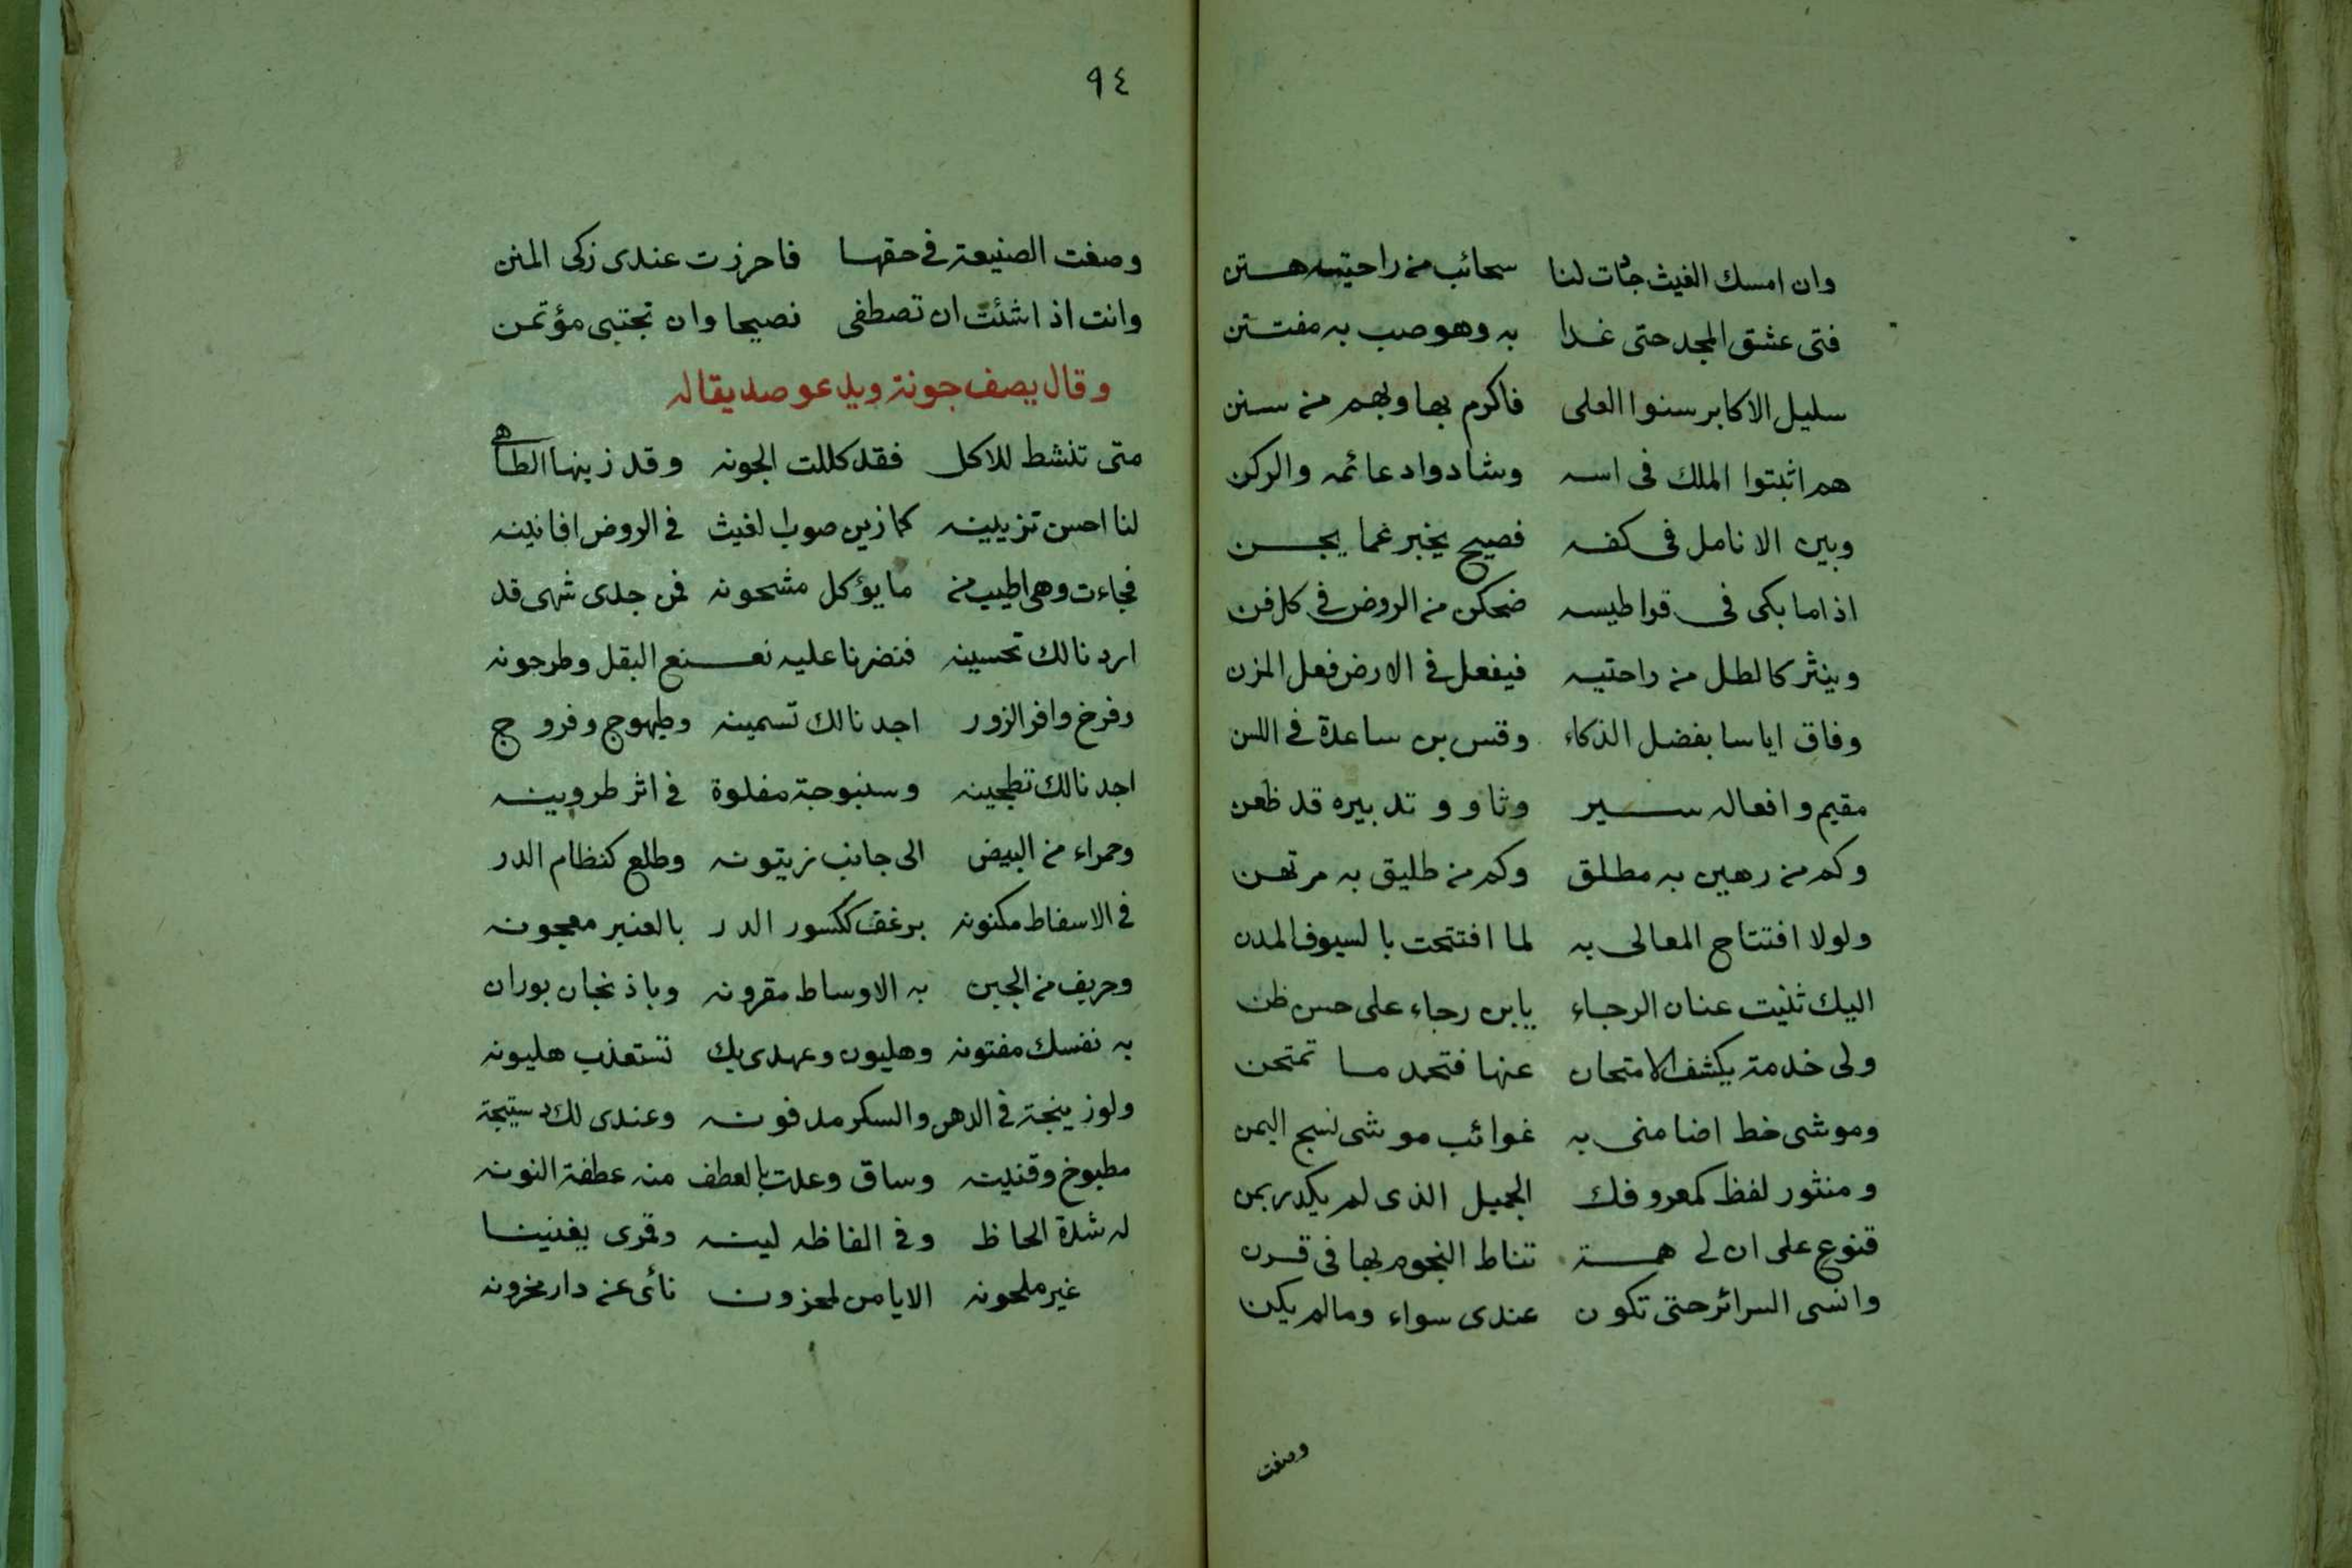 وان امسك الغيث جأت لنا سحائب من راحتيه هتن
فتى عشق المجد حتى غدا به وهو صب به مفتتن
سليل الاكابر سنوا العلى فاكرم بها وبهم من سنن
هم اثبتوا الملك فى اسه وشادوا دعائمه والركن
وبين الانامل فى كفه فصيح يخبر عما يجن
اذا ما بكى فى قواطيسه ضحكن من الروض فى كل فن
وينثر كالطل من راحتيه فيفعل فى الارض فعل المزن
وفاق اياسا بفضل الذكاء وقس بن ساعدة فى اللسن
مقيم وافعاله سير وثاو و تدبيره قد ظعن
وكم من رهين به مطلق وكم من طليق به مرتهن
ولولا افتتاح المعالى به لما افتتحت بالسيوف المدن
اليك ثنيت عنان الرجاء يابن رجاء على حسن ظن
ولى خدمة يكشف الامتحان عنها فتحمد ما تمتحن
وموشى خط اضا منى به غوائب موشى نسج اليمن
ومنثور لفظ كمعروفك الجميل الذى لم يكدر بمن
قنوع على ان لى همة تناط النجوم بها فى قرن
وانسى السرائر حتى تكون عندى سواء ومالم يكن
وصفت
٩٤
وصغت الصنيعة فى حقها فاحرزت عندى زكى المنن
وانت اذا شئت ان تصطفى نصيحا وان تجتبى مؤتمن
وقال يصف جونة ويدعو صديقا له
متى تنشط للاكل فقد كللت الجونه وقد زينها الطاهى
لنا احسن تزيينه كما زين صوب الغيث فى الروض افانينه
فجاءت وهى اطيب من ما يؤكل مشحونه فمن جدى شهى قد
اردنا لك تحسينه فنضرنا عليه نعنع البقل وطرجونه
وفرخ وافر الزور اجدنا لك تسمينه وطيهوج وفروج
اجدنا لك تطجينه وسنبوجة مقلوة فى اثر طروينه
وحمراء من البيض الى جانب زيتونه وطلع كنظام الدر
فى الاسفاط مكنونه برغف ككسور الدر بالعنبر معجونه
وحريف من الجبن به الاوساط مقرونه وباذنجان بوران
به نفسك مفتونه وهليون وعهدى بك تستعذب هليونه
ولوزينجة فى الدهن والسكر مدفونه وعندى لك دستيجة
مطبوخ وقنينه وساق وعدت بالعطف منه عطفة النونه
له شدة الحاظ وفى الفاظه لينه وقمرى يغنينا
غير ملحونه الا يا من لمحزون نائ عن دار محزونه